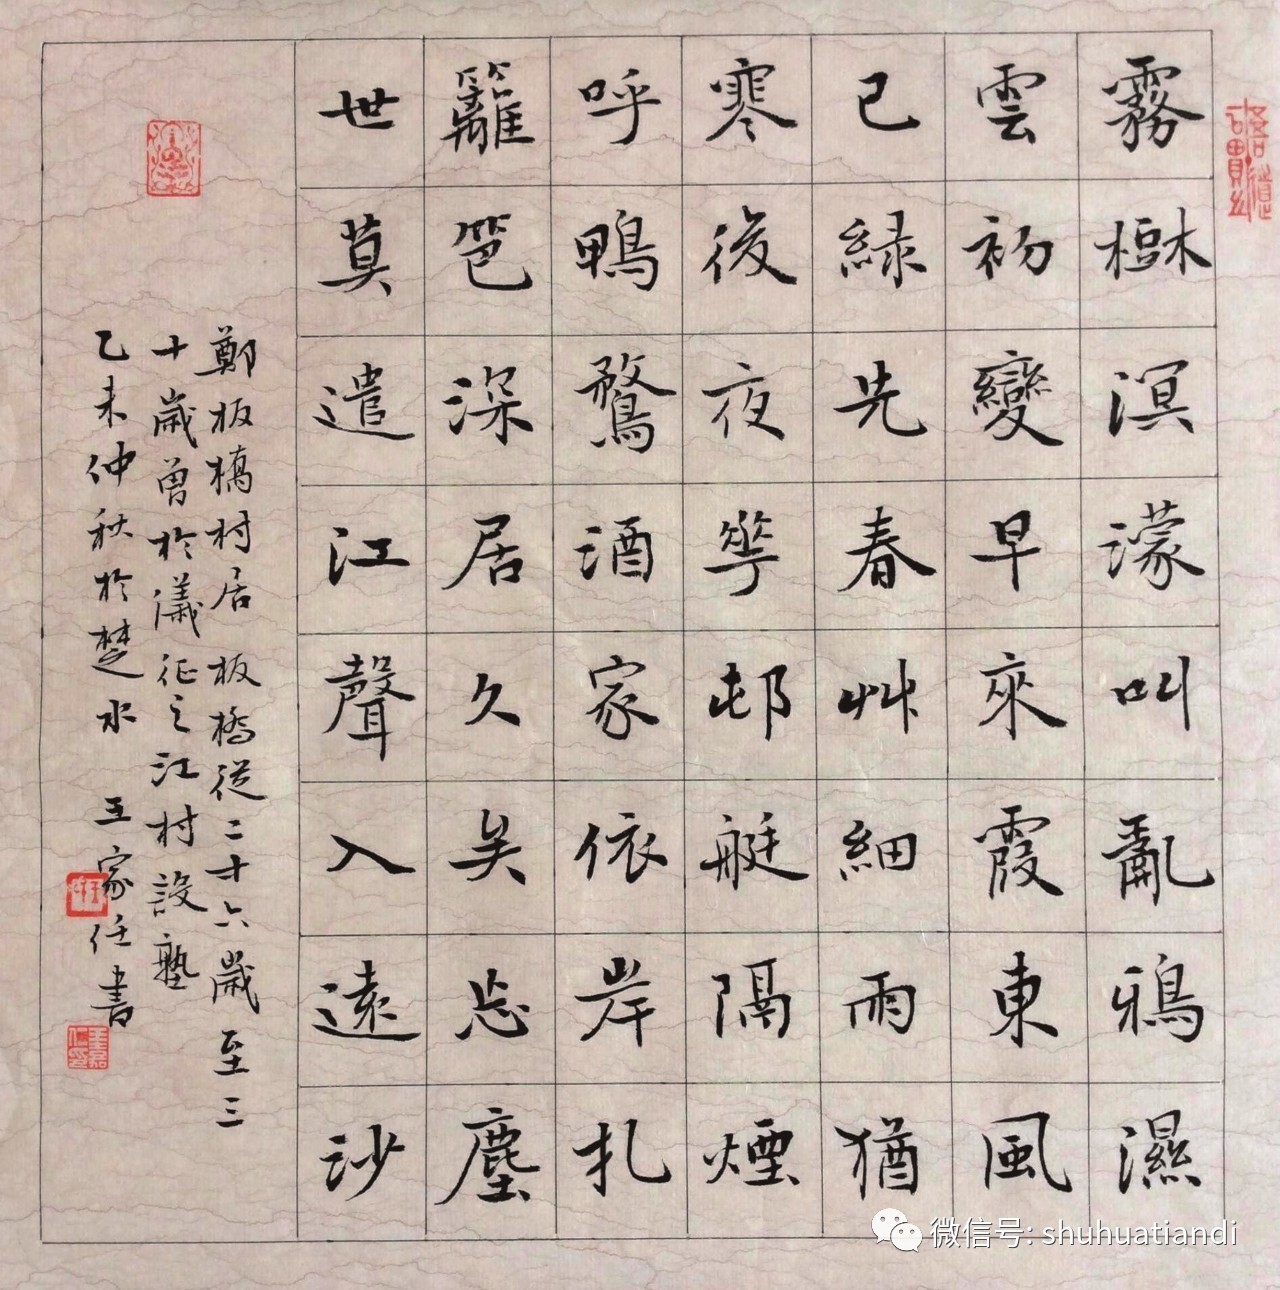 霧樹溟濛叫亂鴉濕
雲初變早來霞東風
已綠先春艸細雨猶
寒後夜華邨艇隔煙
呼鴨鶩酒家依岸扎
籬笆深居久矣忘塵
世莫遣江聲入遠沙
鄭板橋村居 板橋從二十六歲至三
十歲曾於儀征之江村設塾
乙未仲秋於楚水 王家任書
微信号: shuhuatiandi